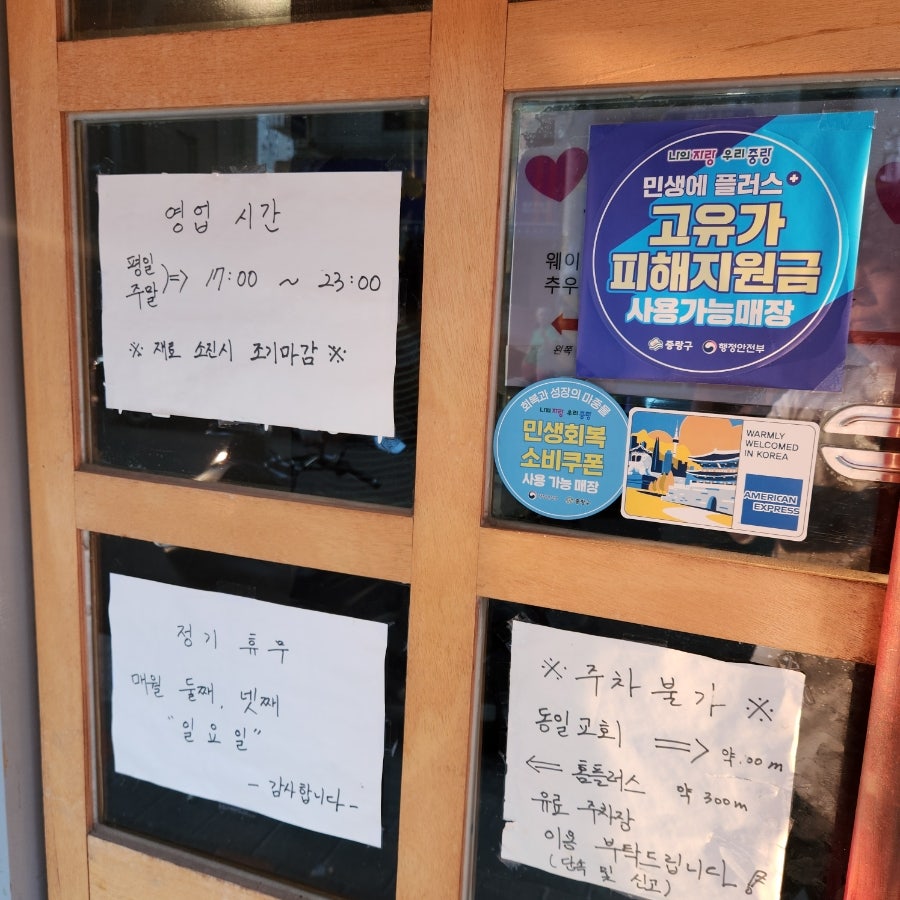 영업 시간
평일
주말 ) => 17:00 ~ 23:00
※ 재료 소진시 조기마감 ※
나의 자랑 우리 중랑
민생에 플러스 +
고유가
피해지원금
사용가능매장
중랑구 행정안전부
웨이
추우
왼쪽
회복과 성장의 마중물
나의 자랑 우리 중랑
민생회복
소비쿠폰
사용 가능 매장
WARMLY
WELCOMED
IN KOREA
AMERICAN
EXPRESS
정기 휴무
매월 둘째, 넷째
"일요일"
- 감사합니다 -
※ 주차 불가 ※
동일교회 => 약.00m
<= 홈플러스 약 300m
유료 주차장
이용 부탁드립니다
(단속 및 신고)